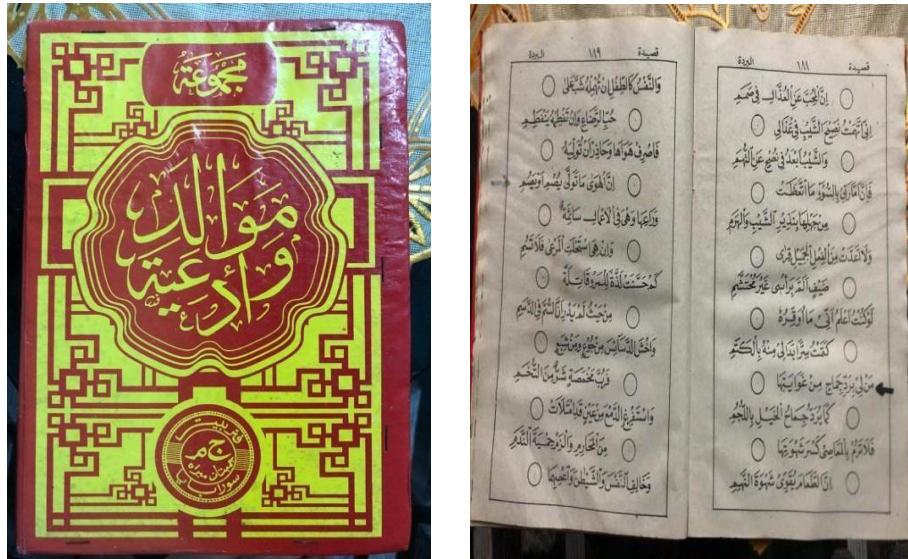 مجموعة
موالد
وأدعية
فتربيت
ج م
جمبتان ميره
سورابايا
قصيدة ١١٨ البردة
اِنَّ الْمُحِبَّ عَنِ الْعُذَّالِ فِي صَمَمِ
اِنِّي اتَّهَمْتُ نَصِيْحَ الشَّيْبِ فِي عَذَلِي
وَالشَّيْبُ اَبْعَدُ فِي نُصْحٍ عَنِ التُّهَمِ
فَاِنَّ اَمَّارَتِي بِالسُّوْءِ مَا اتَّعَظَتْ
مِنْ جَهْلِهَا بِنَذِيْرِ الشَّيْبِ وَالْهَرَمِ
وَلَا اَعَدَّتْ مِنَ الْفِعْلِ الْجَمِيْلِ قِرَى
ضَيْفٍ اَلَمَّ بِرَأْسِى غَيْرَ مُحْتَشِمِ
لَوْ كُنْتُ اَعْلَمُ اَنِّي مَا اُوَقِّرُهُ
كَتَمْتُ سِرًّا بَدَا لِيْ مِنْهُ بِالْكَتَمِ
مَنْ لِيْ بِرَدِّ جِمَاحٍ مِنْ غَوَايَتِهَا
كَمَا يُرَدُّ جِمَاحُ الْخَيْلِ بِاللُّجُمِ
فَلَا تَرُمْ بِالْمَعَاصِى كَسْرَ شَهْوَتِهَا
اِنَّ الطَّعَامَ يُقَوِّى شَهْوَةَ النَّهِمِ
قصيدة ١١٩ البردة
وَالنَّفْسُ كَالطِّفْلِ اِنْ تُهْمِلْهُ شَبَّ عَلَى
حُبِّ الرَّضَاعِ وَاِنْ تَفْطِمْهُ يَنْفَطِمِ
فَاصْرِفْ هَوَاهَا وَحَاذِرْ اَنْ تُوَلِّيَهُ
اِنَّ الْهَوَى مَا تَوَلَّى يُصْمِ اَوْ يَصِمِ
وَرَاعِهَا وَهِىَ فِى الْاَعْمَالِ سَائِمَةٌ
وَاِنْ هِىَ اسْتَحْلَتِ الْمَرْعَى فَلَا تُسِمِ
كَمْ حَسَّنَتْ لَذَّةً لِلْمَرْءِ قَاتِلَةً
مِنْ حَيْثُ لَمْ يَدْرِ اَنَّ السُّمَّ فِي الدَّسَمِ
وَاخْشَ الدَّسَائِسَ مِنْ جُوْعٍ وَمِنْ شِبَعٍ
فَرُبَّ مَخْمَصَةٍ شَرٌّ مِنَ التُّخَمِ
وَاسْتَفْرِغِ الدَّمْعَ مِنْ عَيْنٍ قَدِ امْتَلَأَتْ
مِنَ الْمَحَارِمِ وَالْزَمْ حِمْيَةَ النَّدَمِ
وَخَالِفِ النَّفْسَ وَالشَّيْطٰنَ وَاعْصِهِمَا